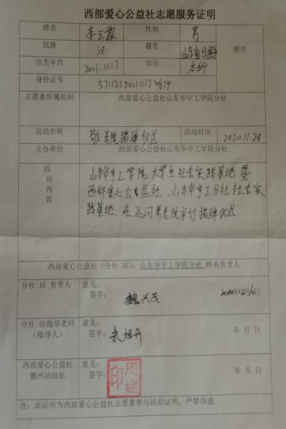 西部爱心公益社志愿服务证明
姓名 性别 男
民族 汉 籍贯 照片
出生年月 2001.11.17 学历 本科
身份证号
志愿者所属组织 西部爱心公益社山东华宇工学院分社
活动名称 敬老院揭牌仪式 活动时间 2020.11.28
主办单位 西部爱心公益社山东华宇工学院分社
活动内容 山东华宇工学院大学生社会实践基地暨
西部爱心公益社,山东华宇工分社社会实
践基地,在 养老院举行揭牌仪式
西部爱心公益社(分社/站):山东华宇工学院分社 相关负责人
分社/站 负责人 意见:
签字:
分社/站指导老师 意见:
(指导人) 签字: 年 月 日
西部爱心公益社 意见:
德州站站长 签字: 年 月 日
注:此证明为西部爱心公益社志愿者参与活动证明,严禁伪造